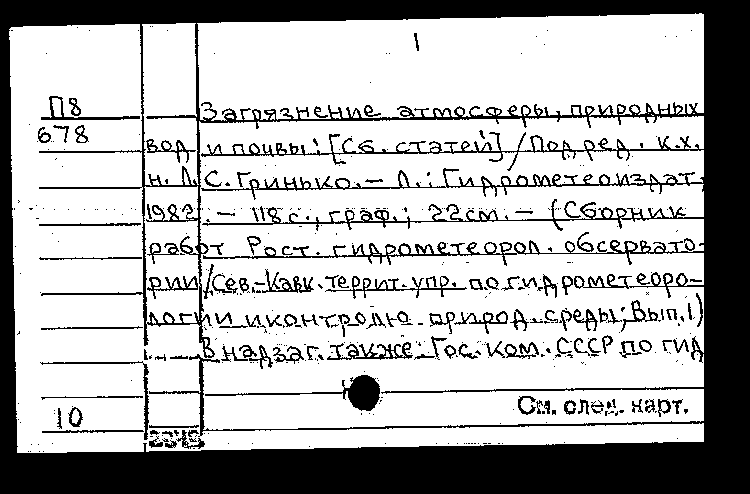 1
П8
678
Загрязнение атмосферы, природных
вод и почвы: [Сб. статей] / Под ред. к.х.
н. Л. С. Гринько. — Л.: Гидрометеоиздат,
1982. — 118 с., граф.; 22 см. — (Сборник
работ Рост. гидрометеорол. обсервато-
рии / Сев.-Кавк. террит. упр. по гидрометеоро-
логии и контролю природ. среды; Вып. 1)
В надзаг. также: Гос. ком. СССР по гид
См. след. карт.
10